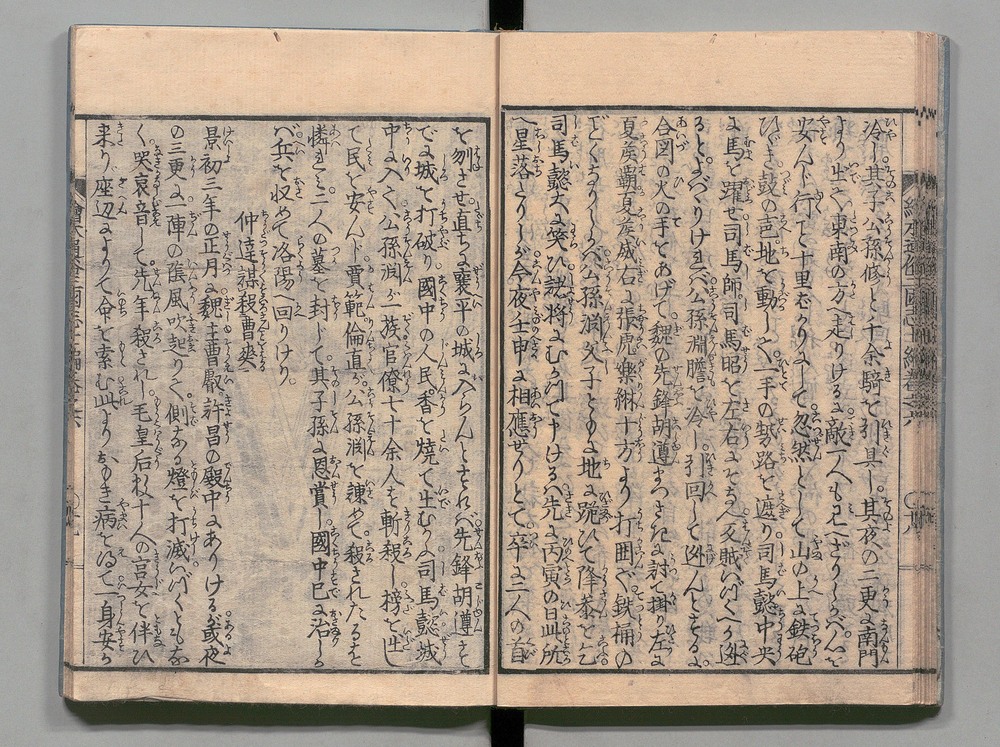 冷し。其子公孫修と千余騎を引具し。其夜の二更に南門
より出て。東南の方へ走りけるに敵一人も見へざりしかバ。心を
安んト行こと十里ばかりにして忽然として山の上に鉄砲
ひゞき鼓の声地を動して一手の勢路を遮り司馬懿中央
に馬を躍せ司馬師司馬昭を左右にそなへ反賊いづくへか逃
るとよバゝりけれバ。公孫淵膽を冷し。引回して逃んとするに
合図の火の手をあげて魏の先鋒胡遵まつさきに討て掛り左に
夏侯覇夏侯威右に張虎樂綝十方より打囲ぐ鉄桶の
ごとくなりしかバ公孫淵父子ともに地に跪ひて降参を乞
司馬懿大に笑ひ諸将にむかつて十けるハ先に丙寅の日此所
へ星落たりしが今夜壬申に相應せりとて。卒に二人の首
を刎させ。直ちに襄平の城に入らんとすれバ。先鋒胡遵す
でに城を打破り國中の人民香を焼て出むかふ司馬懿城
中に入て公孫淵が一族官僚七十余人を斬殺し。榜を出し
て民を安んト賈範倫直が。公孫淵を諫めて殺されたるを
憐ミ二人の墓を封じて。其子孫に恩賞し。國中已に治りしか
バ兵を収めて洛陽へ回りけり。
仲達謀殺曹爽
景初三年の正月に魏主曹叡。許昌の殿中にありけるに。或夜
の三更に一陣の陰風吹起りて側なる燈を打滅。いづくともな
く哭哀音して先年殺され。毛皇后数十人の宮女を伴ひ
来り座辺によりて命を索む此よりおもき病を得て一身安か